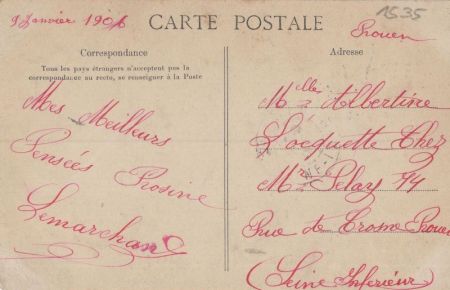 9 Janvier 1906
CARTE POSTALE
1535
Rouen
Correspondance
Tous les pays étrangers n'acceptent pas la
correspondance au recto, se renseigner à la Poste
Mes Meilleurs
Pensées Rosine
Lemarchand
Adresse
Melle Albertine
Locquette Chez
Mr Pelay 74
Rue de Crosne Rouen
(Seine Inferieur)